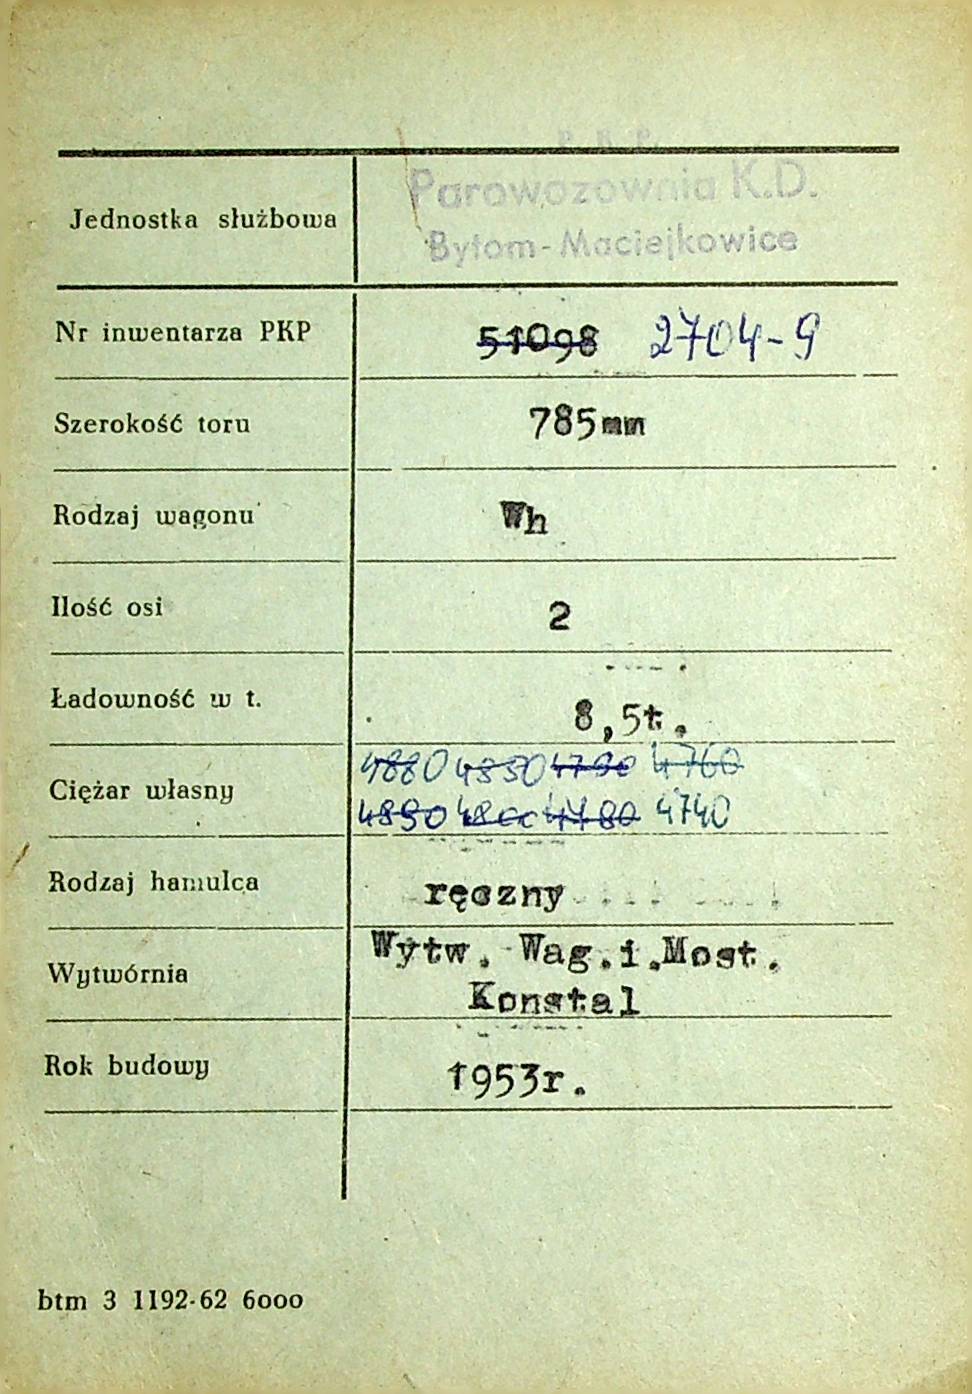 P. K. P.
Parowozownia K.D.
Jednostka służbowa
Bytom-Maciejkowice
Nr inwentarza PKP 51098 2704-9
Szerokość toru 785mm
Rodzaj wagonu Wh
Ilość osi 2
Ładowność w t. 8,5t.
4880 4850 4790 4760
Ciężar własny
4890 4800 4780 4740
Rodzaj hamulca ręczny
Wytw. Wag.i.Most.
Wytwórnia
Konstal
Rok budowy 1953r.
btm 3 1192-62 6000